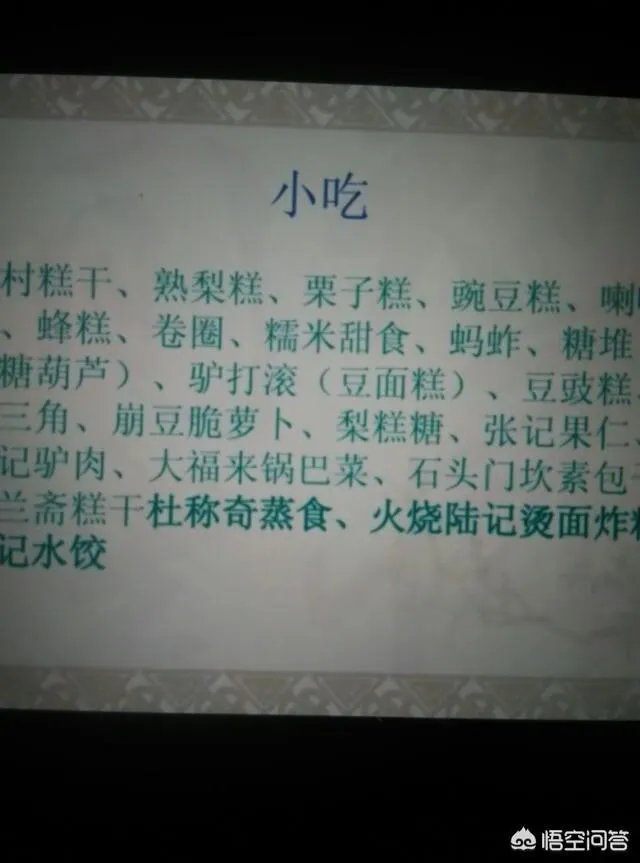 小吃
村糕干、熟梨糕、栗子糕、豌豆糕、喇
、蜂糕、卷圈、糯米甜食、蚂蚱、糖堆
糖葫芦）、驴打滚（豆面糕）、豆豉糕、
三角、崩豆脆萝卜、梨糕糖、张记果仁、
记驴肉、大福来锅巴菜、石头门坎素包
兰斋糕干杜称奇蒸食、火烧陆记烫面炸
记水饺
悟空问答